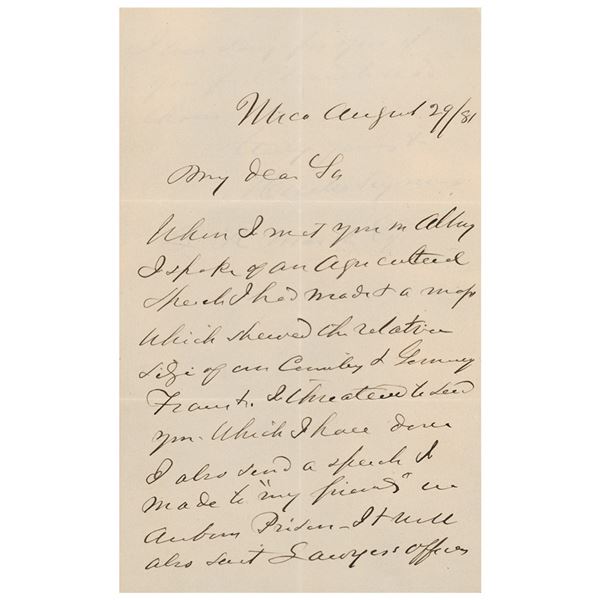 Utica August 29/81
My dear Sir
When I met you in Albany
I spoke of an Agricultural
Speech I had made & a map
which shewed the relative
size of our Country & Germany
France &c. I threatened to send
you. Which I have done
I also send a speech I
made to "my friends" in
Auburn Prison - It will
also suit Lawyers' offices